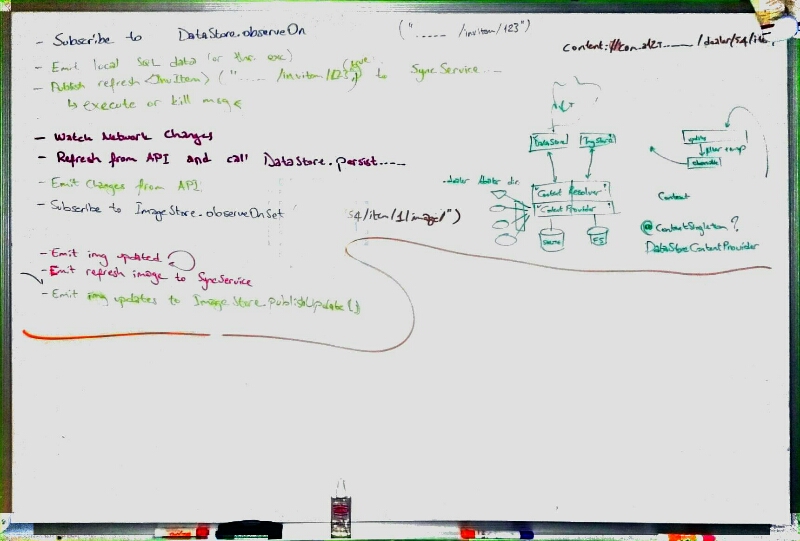 - Subscribe to DataStore.observeOn ("..... /invitem/123")
content://com.a2z...... /dealer/54/item
- Emit local data (or throw exc)
- Publish refresh <InvItem> ("..... /invitem/123", true) to SyncService...
↳ execute or kill msg
- Watch Network Changes
- Refresh from API and call DataStore.persist.....
- Emit Changes from API
- Subscribe to ImageStore.observeOnSet 54/item/1/image/")
- Emit img updated
- Emit refresh image to SyncService
- Emit img updates to ImageStore.publishUpdate()
DataStore
ImgStore
Content Resolver
Content Provider
FS
update
filter
Context
@ContentSingleton ?
DataStoreContentProvider